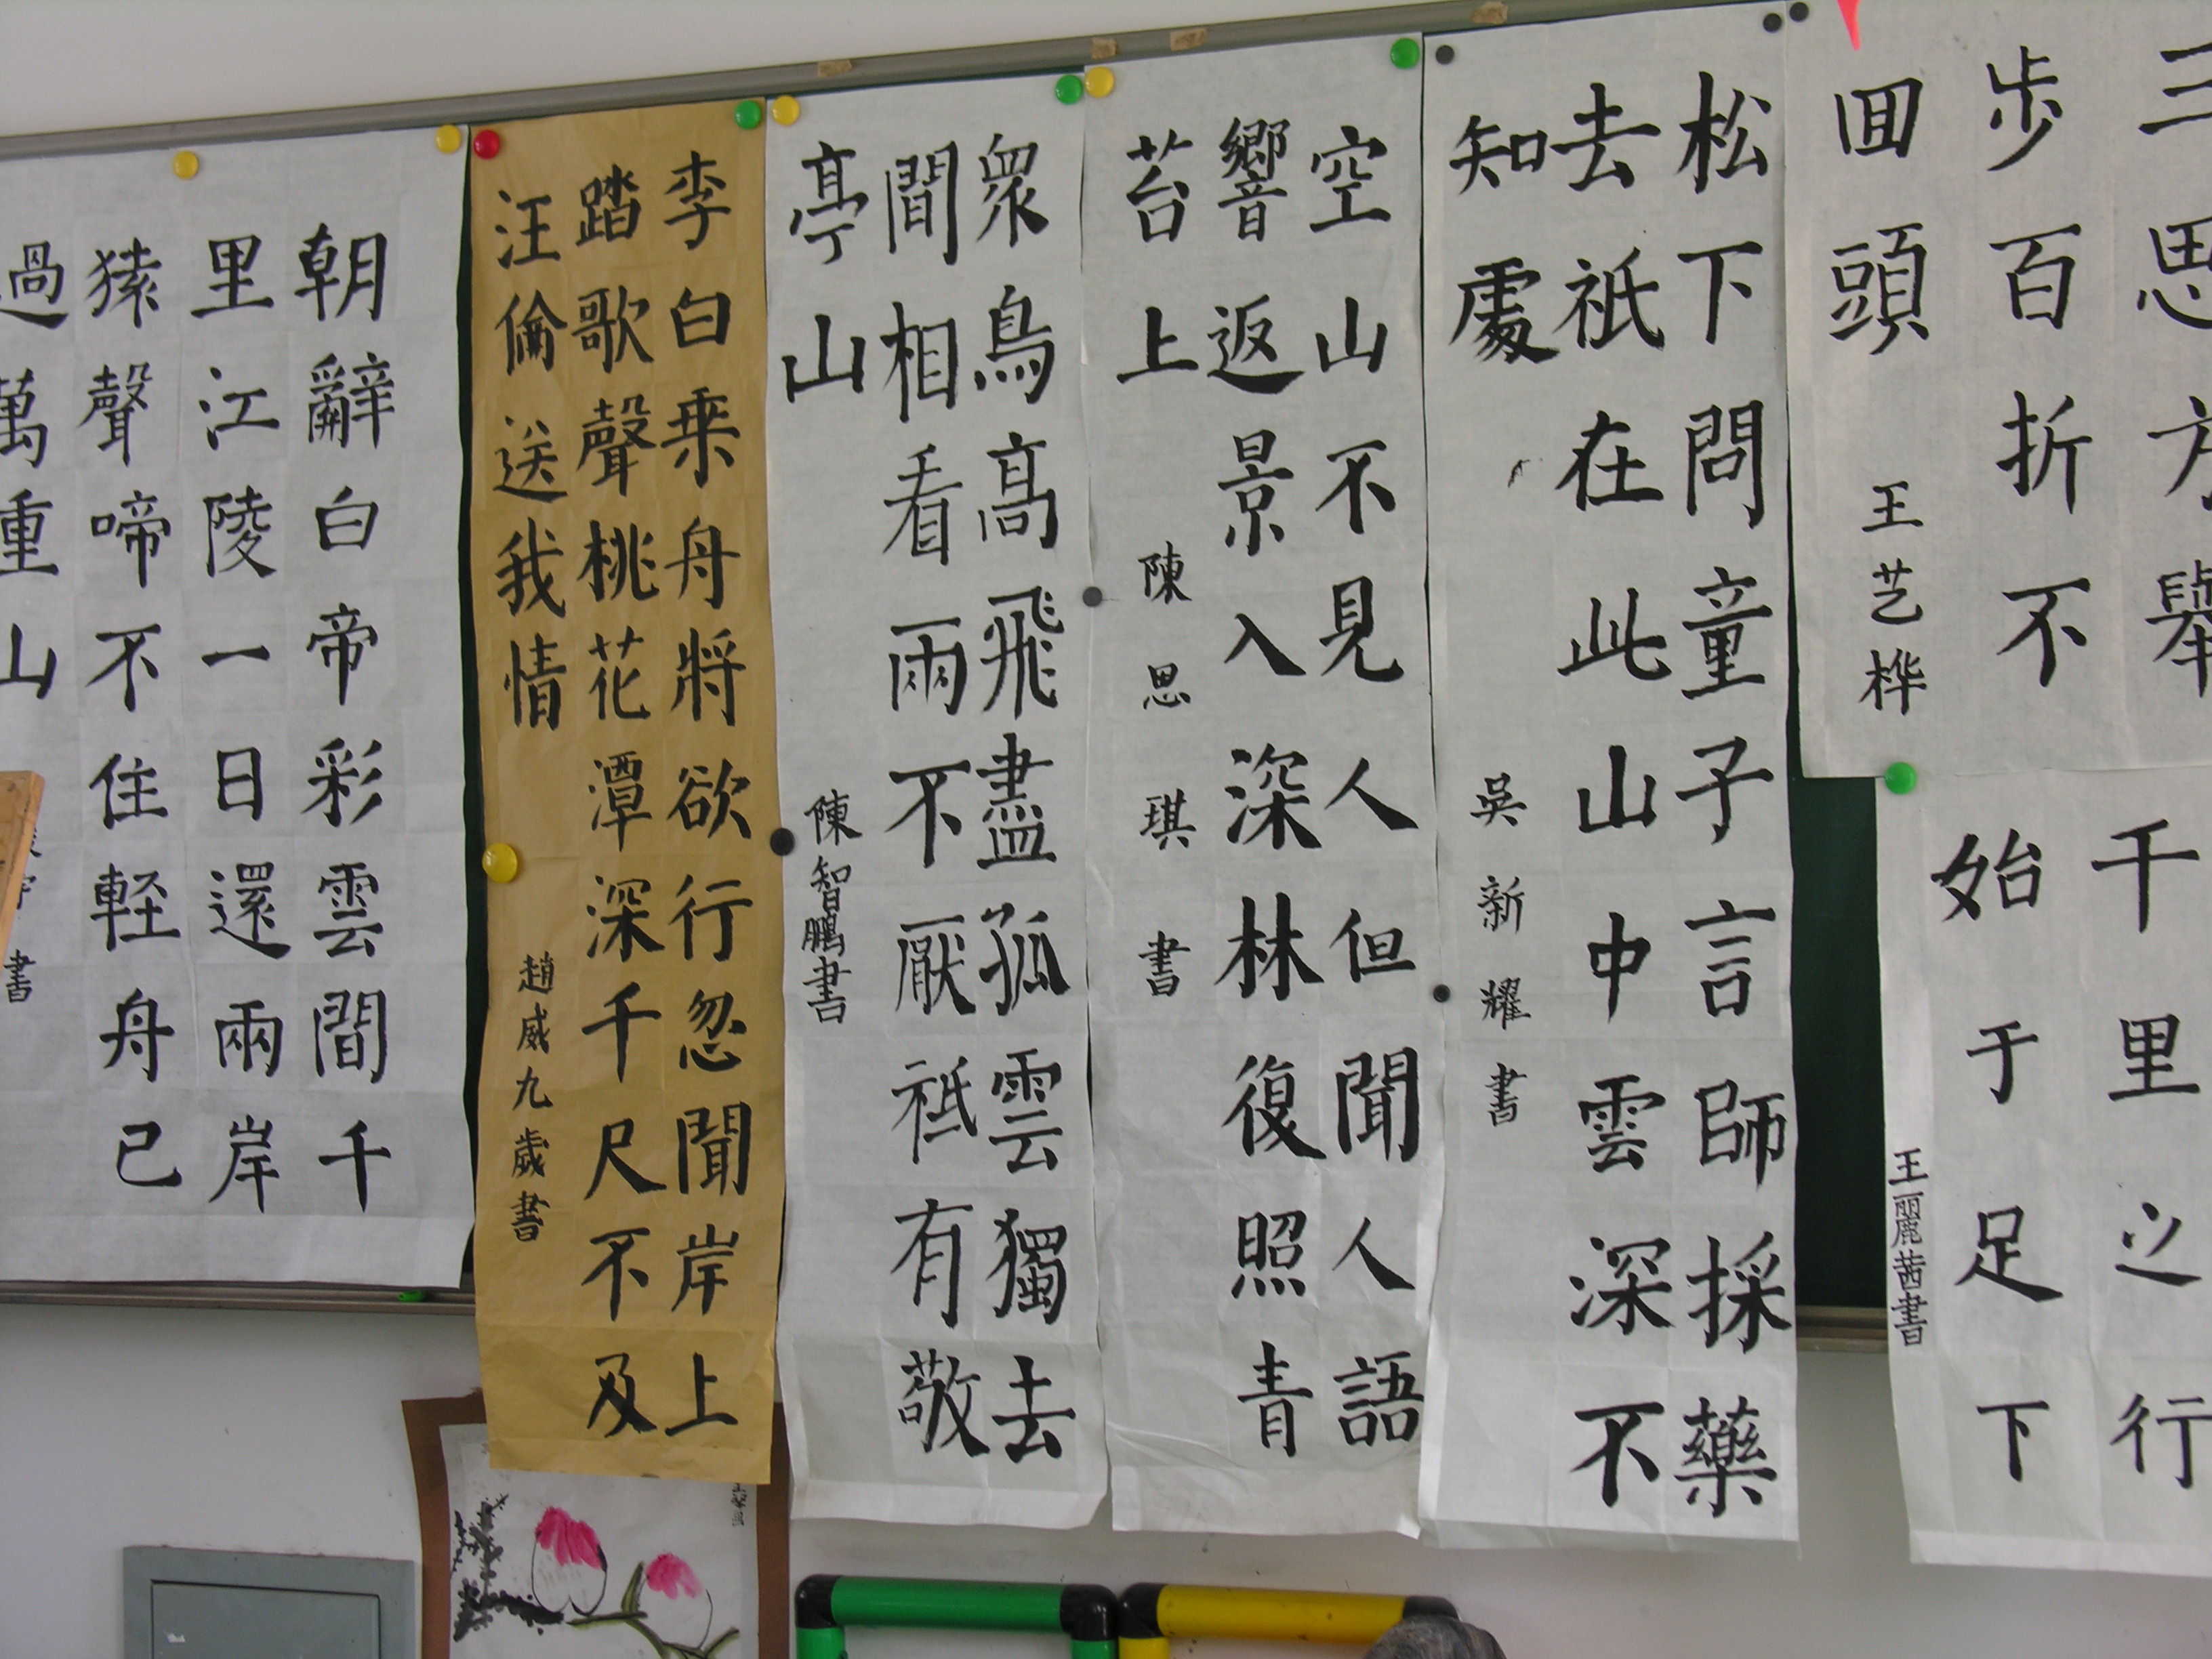 三思方舉
步百折不
囬頭
王艺桦
千里之行
始于足下
王麗茜書
松下問童子言師採藥
去祇在此山中雲深不
知處
吳新耀書
空山不見人但聞人語
響返景入深林復照青
苔上
陳思琪書
眾鳥高飛盡孤雲獨去
間相看兩不厭祇有敬
亭山
陳智鵬書
李白乘舟將欲行忽聞岸上
踏歌聲桃花潭深千尺不及
汪倫送我情
趙威九歲書
朝辭白帝彩雲間千
里江陵一日還兩岸
猿聲啼不住軽舟已
過萬重山
書